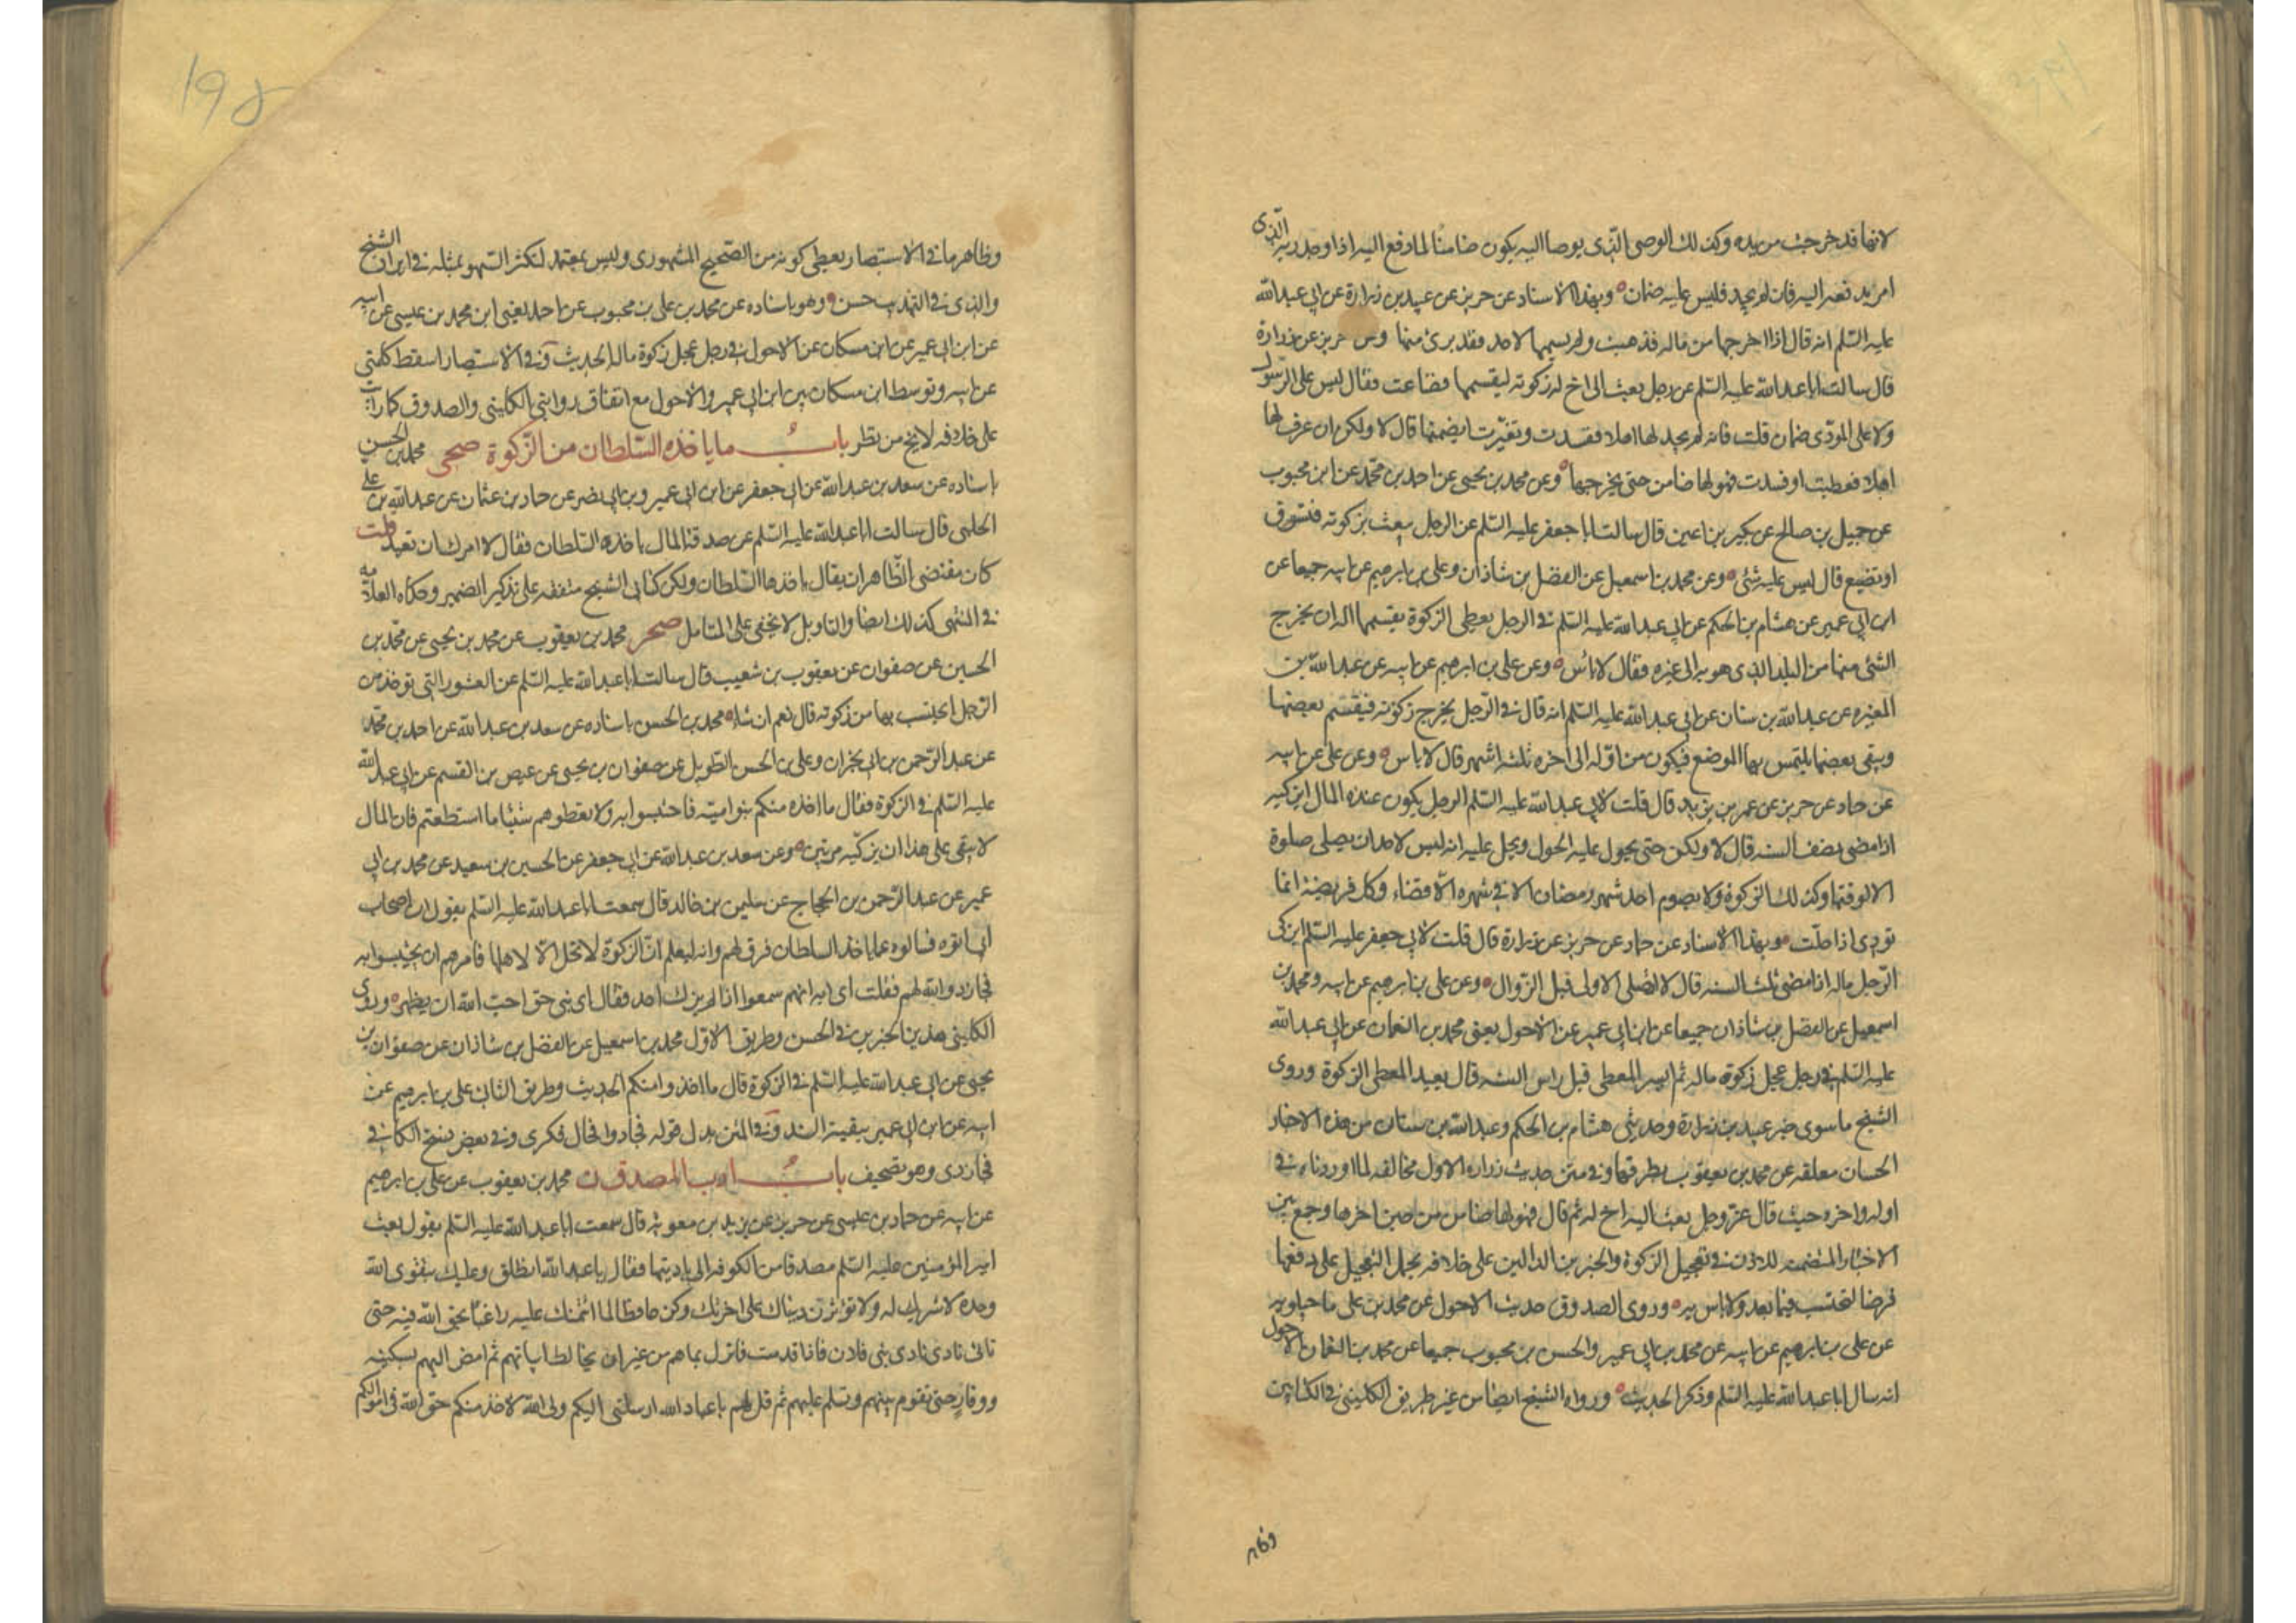 لانها قد خرجت من يده وكذلك الوصى الذى يوصا اليه يكون ضامنا لما دفع اليه اذا وجد ربه الذى
امر بدفعه اليه فان لم يجد فليس عليه ضمان وبهذا الاسناد عن حريز عن عبيد بن زرارة عن ابى عبدالله
عليه السلم انه قال اذا اخرجها من ماله فذهبت ولم يسمها لاحد فقد برئ منها وعن حريز عن زرارة
قال سالت ابا عبدالله عليه السلم عن رجل بعث الى اخ له زكوته ليقسمها فضاعت فقال ليس على الرسول
ولا على المؤدى ضمان قلت فانه لم يجد لها اهلا ففسدت وتغيرت ايضمنها قال لا ولكن ان عرف لها
اهلا فعطبت او فسدت فهو لها ضامن حتى يخرجها وعن محمد بن يحيى عن احمد بن محمد عن ابن محبوب
عن جميل بن صالح عن بكير بن اعين قال سالت ابا جعفر عليه السلم عن الرجل يبعث بزكوته فتسرق
او تضيع قال ليس عليه شئ وعن محمد بن اسمعيل عن الفضل بن شاذان وعلى بن ابرهيم عن ابيه جميعا عن
ابن ابى عمير عن هشام بن الحكم عن ابى عبدالله عليه السلم فى الرجل يعطى الزكوة يقسمها اله ان يخرج
الشئ منها من البلد الذى هو به الى غيره فقال لا باس وعن على بن ابرهيم عن ابيه عن عبدالله بن
المغيره عن عبدالله بن سنان عن ابى عبدالله عليه السلم انه قال فى الرجل يخرج زكوته فيقسم بعضها
ويبقى بعضها يلتمس بها الموضع فيكون من اوله الى اخره ثلثة اشهر قال لا باس وعن على عن ابيه
عن حماد عن حريز عن عمر بن يزيد قال قلت لابى عبدالله عليه السلم الرجل يكون عنده المال ايزكيه
اذا مضى نصف السنه قال لا ولكن حتى يحول عليه الحول ويحل عليه انه ليس لاحد ان يصلى صلوة
الا لوقتها وكذلك الزكوة ولا يصوم احد شهر رمضان الا فى شهره الا قضاء وكل فريضة انما
تؤدى اذا حلت وبهذا الاسناد عن حماد عن حريز عن زرارة قال قلت لابى جعفر عليه السلم ايزكى
الرجل ماله اذا مضى ثلث السنه قال لا اتصلى الاولى قبل الزوال وعن على بن ابرهيم عن ابيه ومحمد بن
اسمعيل عن الفضل بن شاذان جميعا عن ابن ابى عمير عن الاحول يعنى محمد بن النعمان عن ابى عبدالله
عليه السلم فى رجل عجل زكوة ماله ثم ايسر المعطى قبل راس السنه قال يعيد المعطى الزكوة وروى
الشيخ ما سوى خبر عبيد بن زرارة وحديثى هشام بن الحكم وعبدالله بن سنان من هذه الاخبار
الحسان معلقه عن محمد بن يعقوب بطرقها وفى متن حديث زراره الاول مخالفه لما اوردناه فى
اوله واخره حيث قال عن رجل بعث اليه اخ له ثم قال فهو لها ضامن من حين اخرها وجمع بين
الاخبار المتضمنه للاذن فى تعجيل الزكوة والخبرين الدالين على خلافه بحمل التعجيل على دفعها
قرضا لتحتسب فيما بعد ولا باس به وروى الصدوق حديث الاحول عن محمد بن على ماجيلويه
عن على بن ابرهيم عن ابيه عن محمد بن ابى عمير والحسن بن محبوب جميعا عن محمد بن النعمان الاحول
انه سال ابا عبدالله عليه السلم وذكر الحديث ورواه الشيخ ايضا من غير طريق الكلينى فى الكتابين
وظاهر
١٩٥
وظاهر ما فى الاستبصار يعطى كونه من الصحيح المشهورى وليس بمعتمد لتكثر السهو بمثله فى ايراد الشيخ
والذى فى التهذيب حسن وهو باسناده عن محمد بن على بن محبوب عن احمد يعنى ابن محمد بن عيسى عن ابيه
عن ابن ابى عمير عن ابن مسكان عن الاحول فى رجل عجل زكوة ماله الحديث وفى الاستبصار اسقط كلمتى
عن ابيه وتوسط ابن مسكان بين ابن ابى عمير والاحول مع اتفاق روايتى الكلينى والصدوق كما رايت
على خلافه لا يخ من نظر باب ما ياخذه السلطان من الزكوة صحى محمد بن الحسن
باسناده عن سعد بن عبدالله عن ابى جعفر عن ابن ابى عمير وبن ابى نصر عن حماد بن عثمان عن عبيدالله بن على
الحلبى قال سالت ابا عبدالله عليه السلم عن صدقة المال ياخذه السلطان فقال لا امرك ان تعيد قلت
كان مقتضى الظاهر ان يقال ياخذها السلطان ولكن كتابى الشيخ متفقه على تذكير الضمير وحكاه العلامه
فى المنتهى كذلك ايضا والتاويل لا يخفى على المتامل صحر محمد بن يعقوب عن محمد بن يحيى عن محمد بن
الحسين عن صفوان عن يعقوب بن شعيب قال سالت ابا عبدالله عليه السلم عن العشور التى توخذ من
الرجل ايحتسب بها من زكوته قال نعم ان شاء محمد بن الحسن باسناده عن سعد بن عبدالله عن احمد بن محمد
عن عبدالرحمن بن ابى نجران وعلى بن الحسن الطويل عن صفوان بن يحيى عن عيص بن القسم عن ابى عبدالله
عليه السلم فى الزكوة فقال ما اخذه منكم بنو امية فاحتسبوا به ولا تعطوهم شيئا ما استطعتم فان المال
لا يبقى على هذا ان يزكيه مرتين وعن سعد بن عبدالله عن ابى جعفر عن الحسين بن سعيد عن محمد بن ابى
عمير عن عبدالرحمن بن الحجاج عن سليمن بن خالد قال سمعت ابا عبدالله عليه السلم يقول ان اصحاب
ابى اتوه فسالوه عما ياخذ السلطان فرق لهم وانه ليعلم ان الزكوة لا تحل الا لاهلها فامرهم ان يحتسبوا به
فجاز ذا والله لهم فقلت اى ابه انهم سمعوا اذا لم يزك احد فقال اى بنى حق احب الله ان يظهره وروى
الكلينى هذين الخبرين فى الحسن وطريق الاول محمد بن اسمعيل عن الفضل بن شاذان عن صفوان بن
يحيى عن ابى عبدالله عليه السلم فى الزكوة قال ما اخذوا منكم الحديث وطريق الثانى على بن ابرهيم عن
ابيه عن ابن ابى عمير ببقية السند وفى المتن بدل قوله فجاز ذا فجال فكرى وفى بعض نسخ الكافى
فجاز ذى وهو تصحيف باب ادب المصدق ن محمد بن يعقوب عن على بن ابرهيم
عن ابيه عن حماد بن عيسى عن حريز عن بريد بن معويه قال سمعت ابا عبدالله عليه السلم يقول بعث
امير المؤمنين عليه السلم مصدقا من الكوفه الى باديتها فقال يا عبدالله انطلق وعليك بتقوى الله
وحده لا شريك له ولا تؤثرن دنياك على اخرتك وكن حافظا لما ائتمنك عليه راعيا بحق الله فيه حتى
تاتى نادى بنى فلان فاذا قدمت فانزل بمائهم من غير ان تخالط ابياتهم ثم امض اليهم بسكينه
ووقار حتى تقوم بينهم وتسلم عليهم ثم قل لهم يا عباد الله ارسلنى اليكم ولى الله لاخذ منكم حق الله فى اموالكم